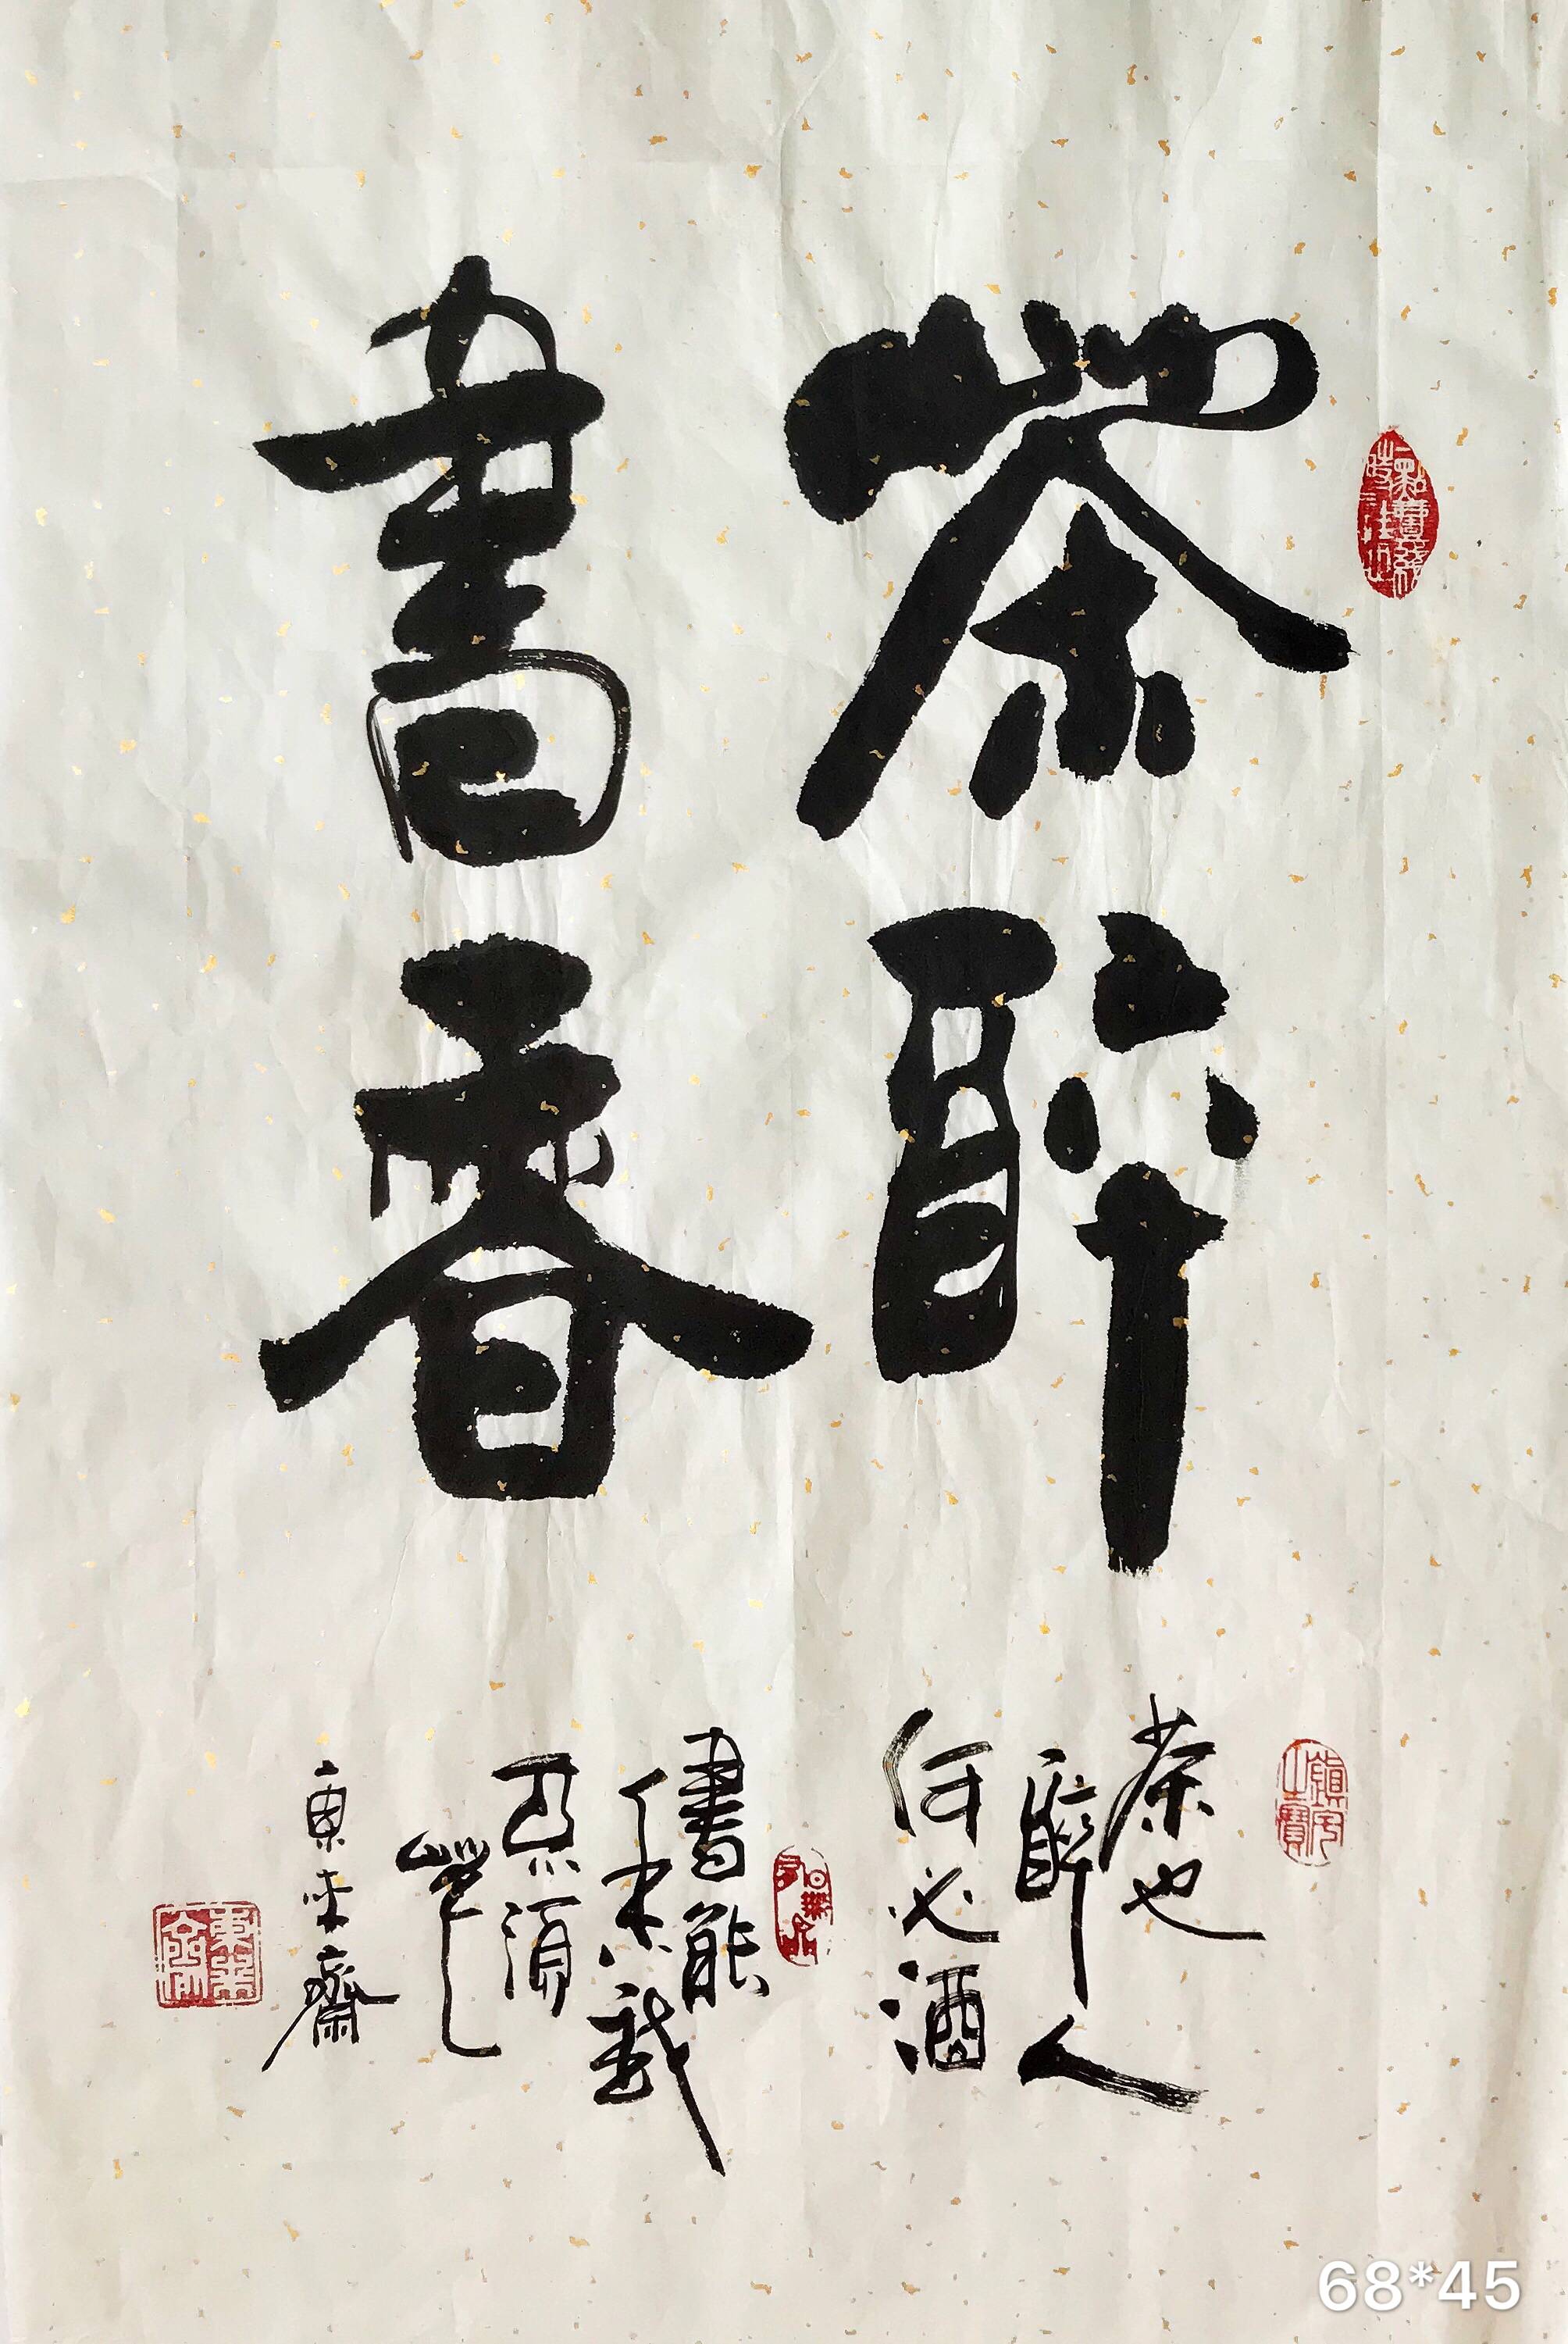 茶醉
書香
茶也
醉人
何必酒
書能
香我
不須
花
東来齋
68*45